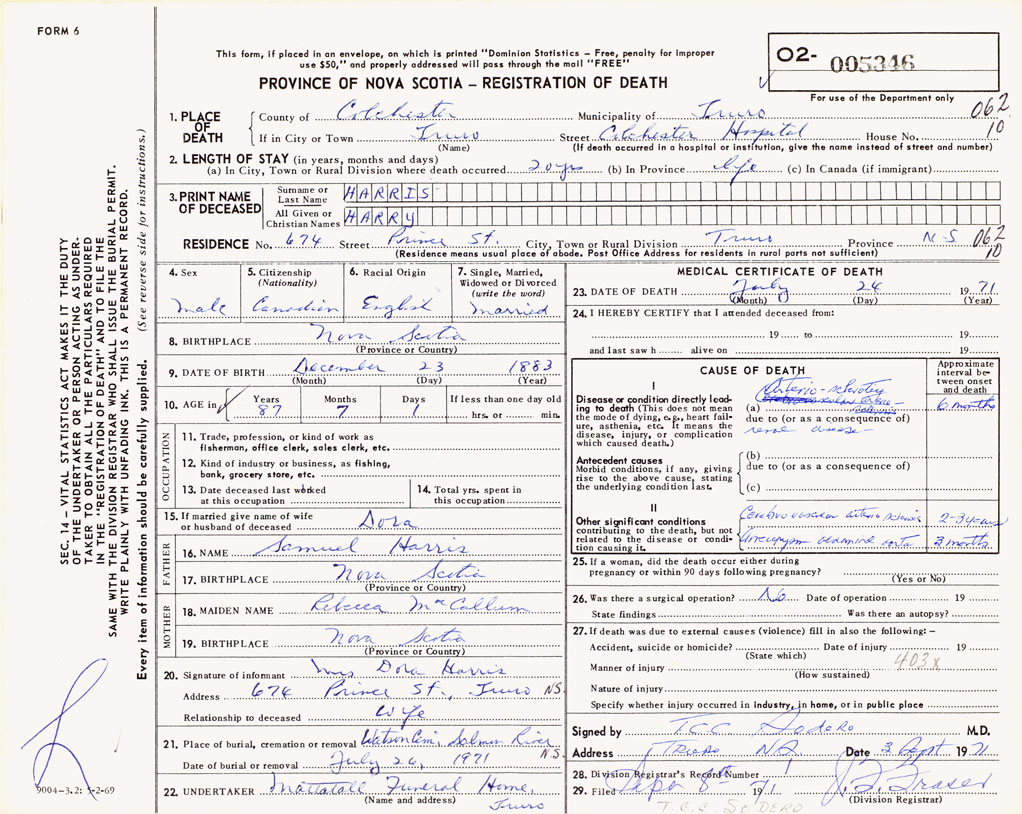 FORM 6
This form, if placed in an envelope, on which is printed "Dominion Statistics – Free, penalty for improper
use $50," and properly addressed will pass through the mail "FREE"
PROVINCE OF NOVA SCOTIA – REGISTRATION OF DEATH
02- 005346
For use of the Department only
SEC. 14 – VITAL STATISTICS ACT MAKES IT THE DUTY
OF THE UNDERTAKER OR PERSON ACTING AS UNDER-
TAKER TO OBTAIN ALL THE PARTICULARS REQUIRED
IN THE "REGISTRATION OF DEATH" AND TO FILE THE
SAME WITH THE DIVISION REGISTRAR WHO SHALL ISSUE THE BURIAL PERMIT.
WRITE PLAINLY WITH UNFADING INK. THIS IS A PERMANENT RECORD.
Every item of information should be carefully supplied. (See reverse side for instructions.)
1. PLACE OF DEATH
County of Colchester Municipality of Truro 062
If in City or Town Truro Street Colchester Hospital House No. 10
(Name) (If death occurred in a hospital or institution, give the name instead of street and number)
2. LENGTH OF STAY (in years, months and days)
(a) In City, Town or Rural Division where death occurred 20 yrs (b) In Province life (c) In Canada (if immigrant)
3. PRINT NAME OF DECEASED
Surname or Last Name HARRIS
All Given or Christian Names HARRY
RESIDENCE No. 674 Street Prince St. City, Town or Rural Division Truro Province N.S. 062
10
(Residence means usual place of abode. Post Office Address for residents in rural parts not sufficient)
4. Sex
Male
5. Citizenship (Nationality)
Canadian
6. Racial Origin
English
7. Single, Married, Widowed or Divorced (write the word)
Married
8. BIRTHPLACE Nova Scotia
(Province or Country)
9. DATE OF BIRTH December 23 1883
(Month) (Day) (Year)
10. AGE in Years 87 Months 7 Days 1 If less than one day old
hrs. or min.
OCCUPATION
11. Trade, profession, or kind of work as
fisherman, office clerk, sales clerk, etc.
12. Kind of industry or business, as fishing,
bank, grocery store, etc.
13. Date deceased last worked
at this occupation
14. Total yrs. spent in
this occupation
15. If married give name of wife
or husband of deceased Dora
FATHER
16. NAME Samuel Harris
17. BIRTHPLACE Nova Scotia
(Province or Country)
MOTHER
18. MAIDEN NAME Rebecca McCallum
19. BIRTHPLACE Nova Scotia
(Province or Country)
20. Signature of informant Mrs Dora Harris
Address 674 Prince St., Truro NS.
Relationship to deceased Wife
21. Place of burial, cremation or removal Watson Cem, Salmon River N.S.
Date of burial or removal July 26, 1971
22. UNDERTAKER Mattatall Funeral Home, Truro
(Name and address)
9004-3.2: 5-2-69
MEDICAL CERTIFICATE OF DEATH
23. DATE OF DEATH July 24 1971
(Month) (Day) (Year)
24. I HEREBY CERTIFY that I attended deceased from:
19 to 19
and last saw h alive on 19
CAUSE OF DEATH
Approximate interval between onset and death
I
Disease or condition directly lead-
ing to death (This does not mean
the mode of dying, e.g., heart fail-
ure, asthenia, etc. It means the
disease, injury, or complication
which caused death.)
(a) Arterio-sclerotic 6 months
due to (or as a consequence of)
renal disease
Antecedent causes
Morbid conditions, if any, giving
rise to the above cause, stating
the underlying condition last.
(b)
due to (or as a consequence of)
(c)
II
Other significant conditions
contributing to the death, but not
related to the disease or condi-
tion causing it.
Cerebrovascular arterio sclerosis 2-3 years
Aneurysm abdominal aorta 3 months
25. If a woman, did the death occur either during
pregnancy or within 90 days following pregnancy?
(Yes or No)
26. Was there a surgical operation? No Date of operation 19
State findings Was there an autopsy?
27. If death was due to external causes (violence) fill in also the following: –
Accident, suicide or homicide? Date of injury 19
(State which) 403x
Manner of injury
(How sustained)
Nature of injury
Specify whether injury occurred in industry, in home, or in public place
Signed by T.C.C. Sodero M.D.
Address Truro NS. Date 3 Sept 1971
28. Division Registrar's Record Number
29. Filed 8th 1971 J. F. Fraser
(Division Registrar)
T.C.C. SODERO